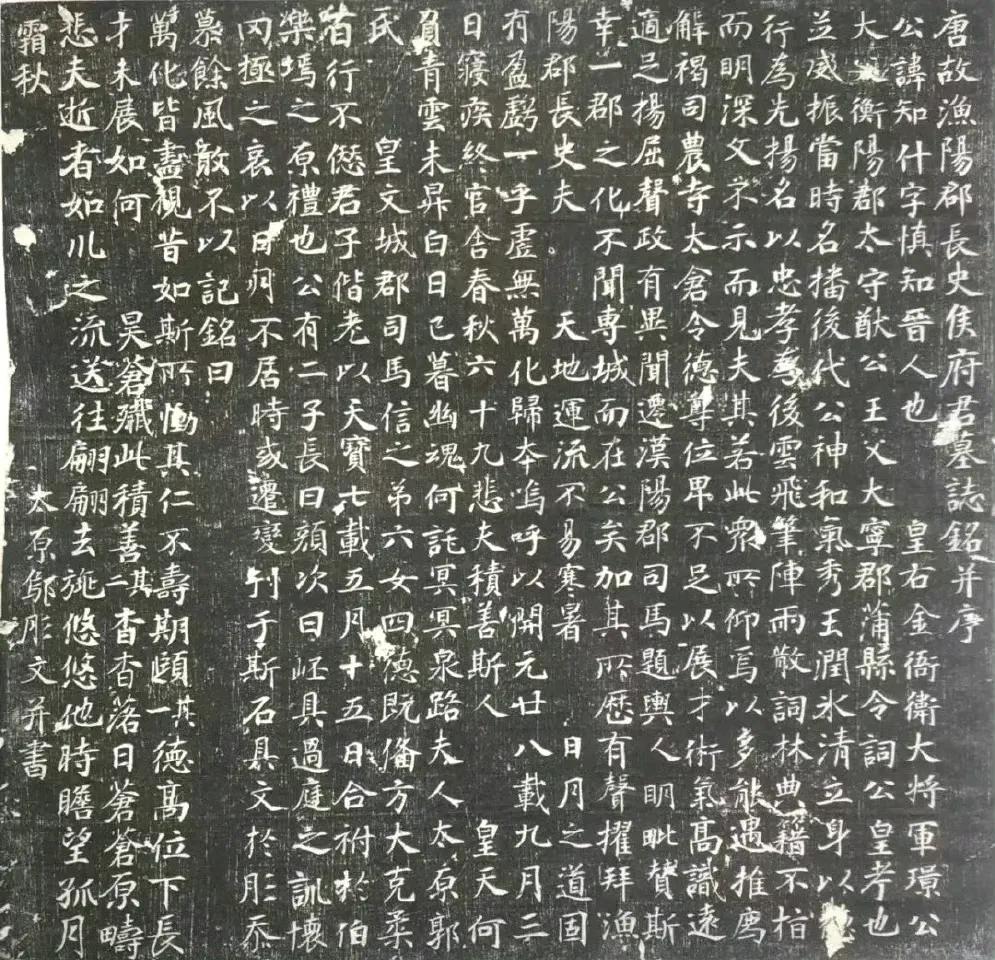 唐故漁陽郡長史侯府君墓誌銘并序
公諱知什字慎知晉人也 皇右金衙衛大將軍璟公
大衡陽郡太守猷公王父大寧郡蒲縣令詞公皇考也
並威振當時名播後代公神和氣秀玉潤氷清立身以
行為先揚名以忠孝為後雲飛筆陣雨散詞林典籍不指
而明深文不示而見夫其若此眾所仰焉以多能遇推薦
解褐司農寺太倉令德尊位卑不足以展才術氣高識遠
適足揚屈聲政有異聞遷漢陽郡司馬題輿人明毗贊斯
幸一郡之化不聞專城而在公矣加其所歷有聲擢拜漁
陽郡長史夫 天地運流不易寒暑 日月之道固
有盈虧一乎虛無萬化歸本嗚呼以開元廿八載九月三
日寢疾終官舍春秋六十九悲夫積善斯人 皇天何
負青雲未昇白日已暮幽魂何託冥冥泉路夫人太原郭
氏 皇文城郡司馬信之第六女四德既俻方大克柔
苟行不僁君子偕老以天寶七載五月十五日合祔於伯
樂塢之原禮也公有二子長曰顏次曰岯具過庭之訓懷
罔極之哀以日月不居時或遷變刊于斯石具文於肜忝
慕餘風敢不以記銘曰
萬化皆盡視昔如斯所慟其仁不壽期頤其一德高位下長
才未展如何 昊蒼殲此積善其二杳杳落日蒼蒼原疇
悲夫逝者如川之流送往翩翩去旐悠悠他時瞻望孤月
霜秋 太原鄔肜文并書